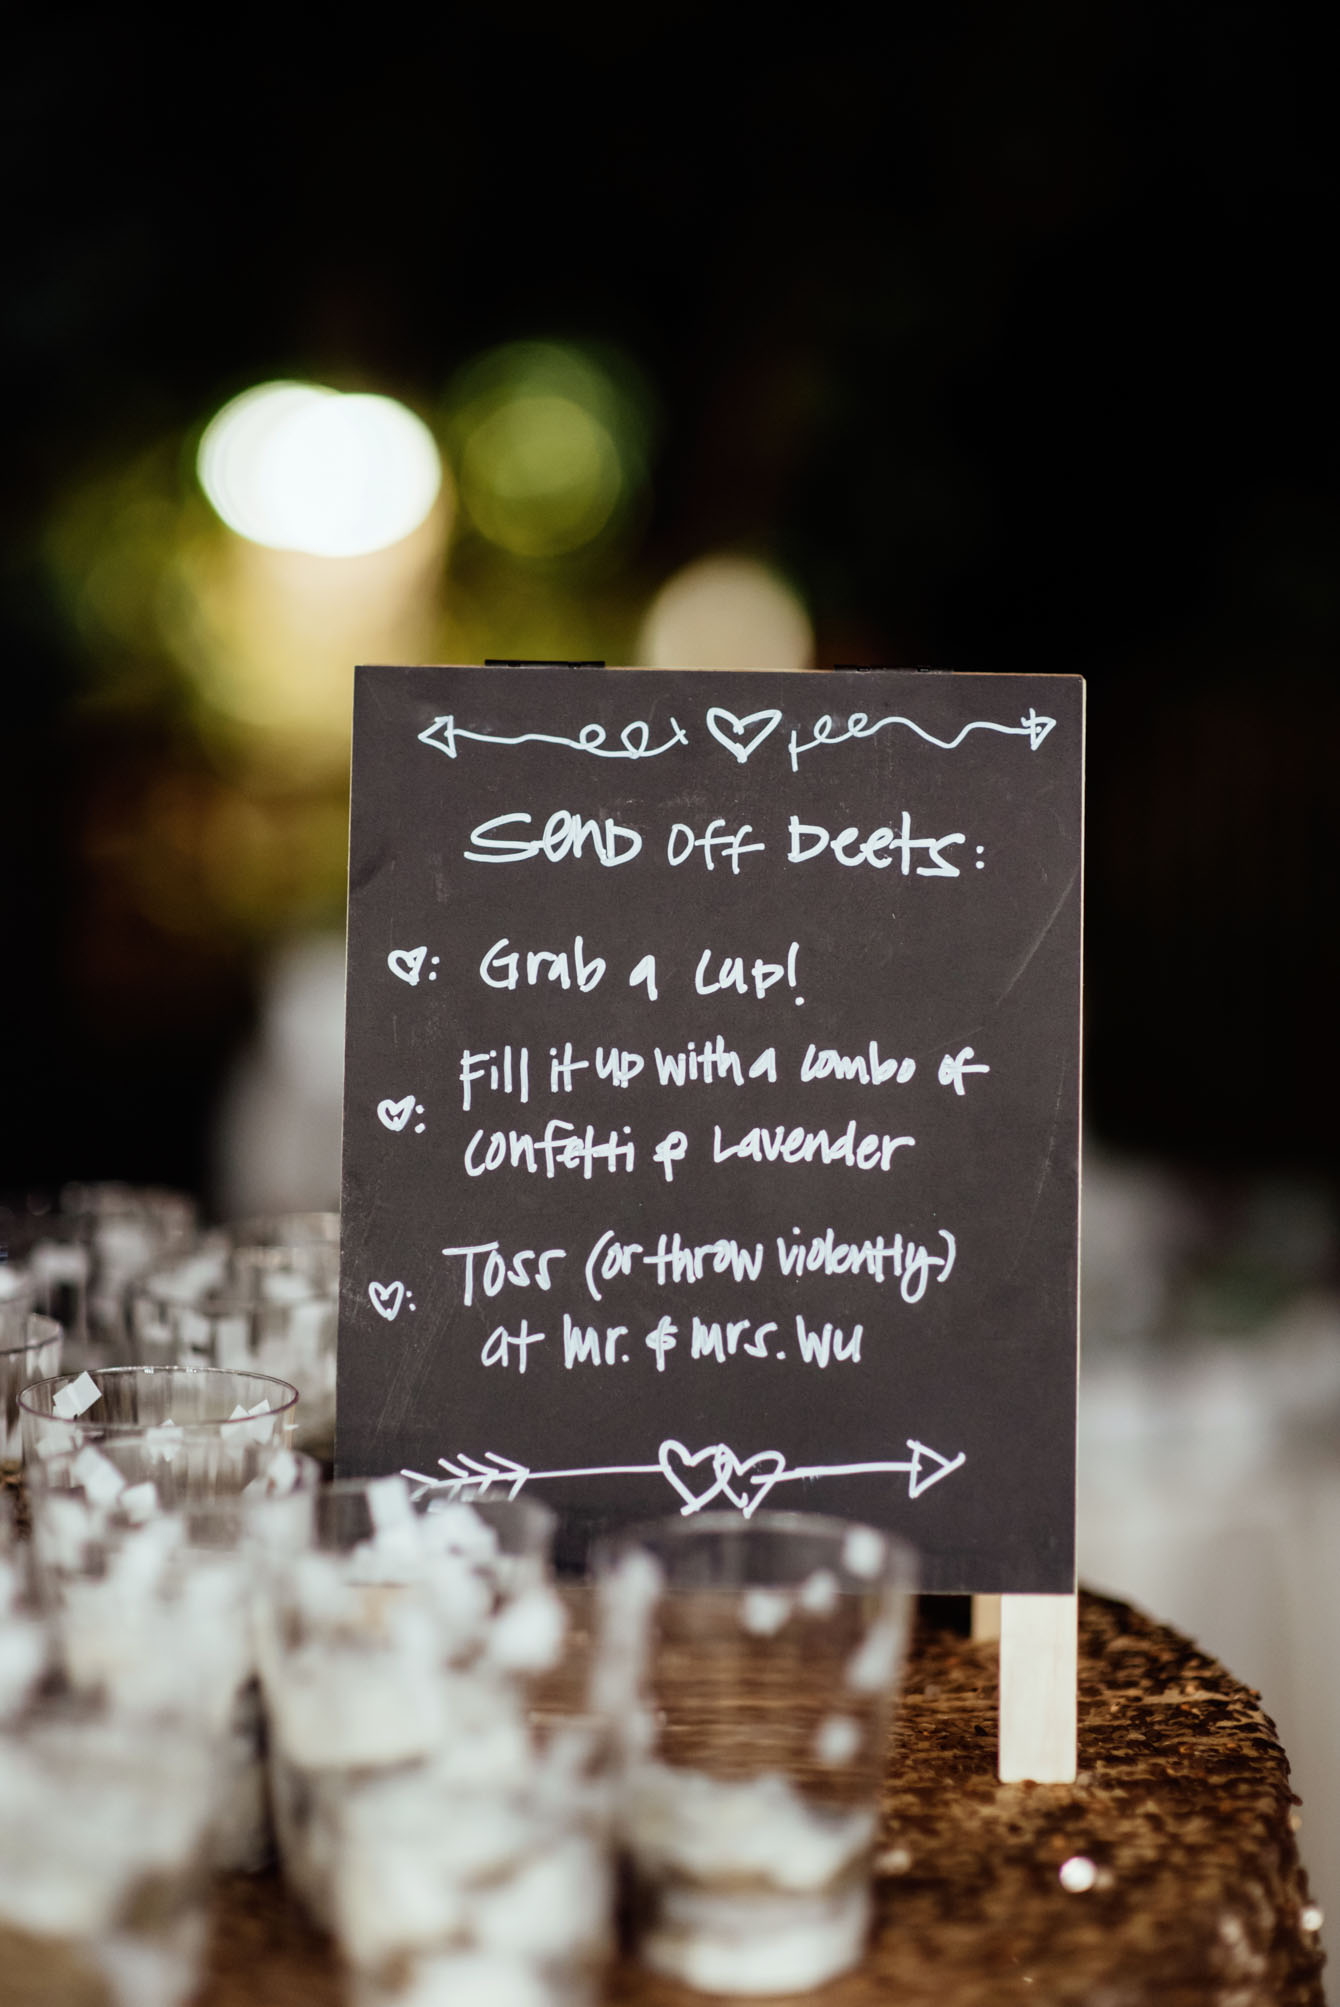 Send Off Deets:
Grab a cup!
Fill it up with a combo of
confetti & Lavender
Toss (or throw violently)
at Mr. & Mrs. Wu